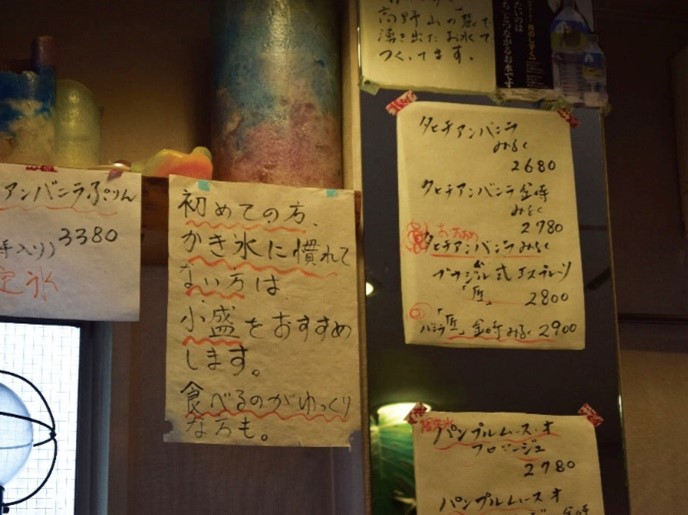 アンバニラぷりん
3380
初めての方、
かき氷に慣れて
ない方は、
小盛をおすすめ
します。
食べるのがゆっくり
な方も。
高野山の
湧き出たお水で
つくってます。
タヒチアンバニラ
みるく
2680
タヒチアンバニラ金時
みるく
2780
タヒチアンバニラみるく
ブラジル式エスプレッソ
2800
金時みるく2900
パンプルムース・オ
フロマージュ
2780
パンプルムース・オ